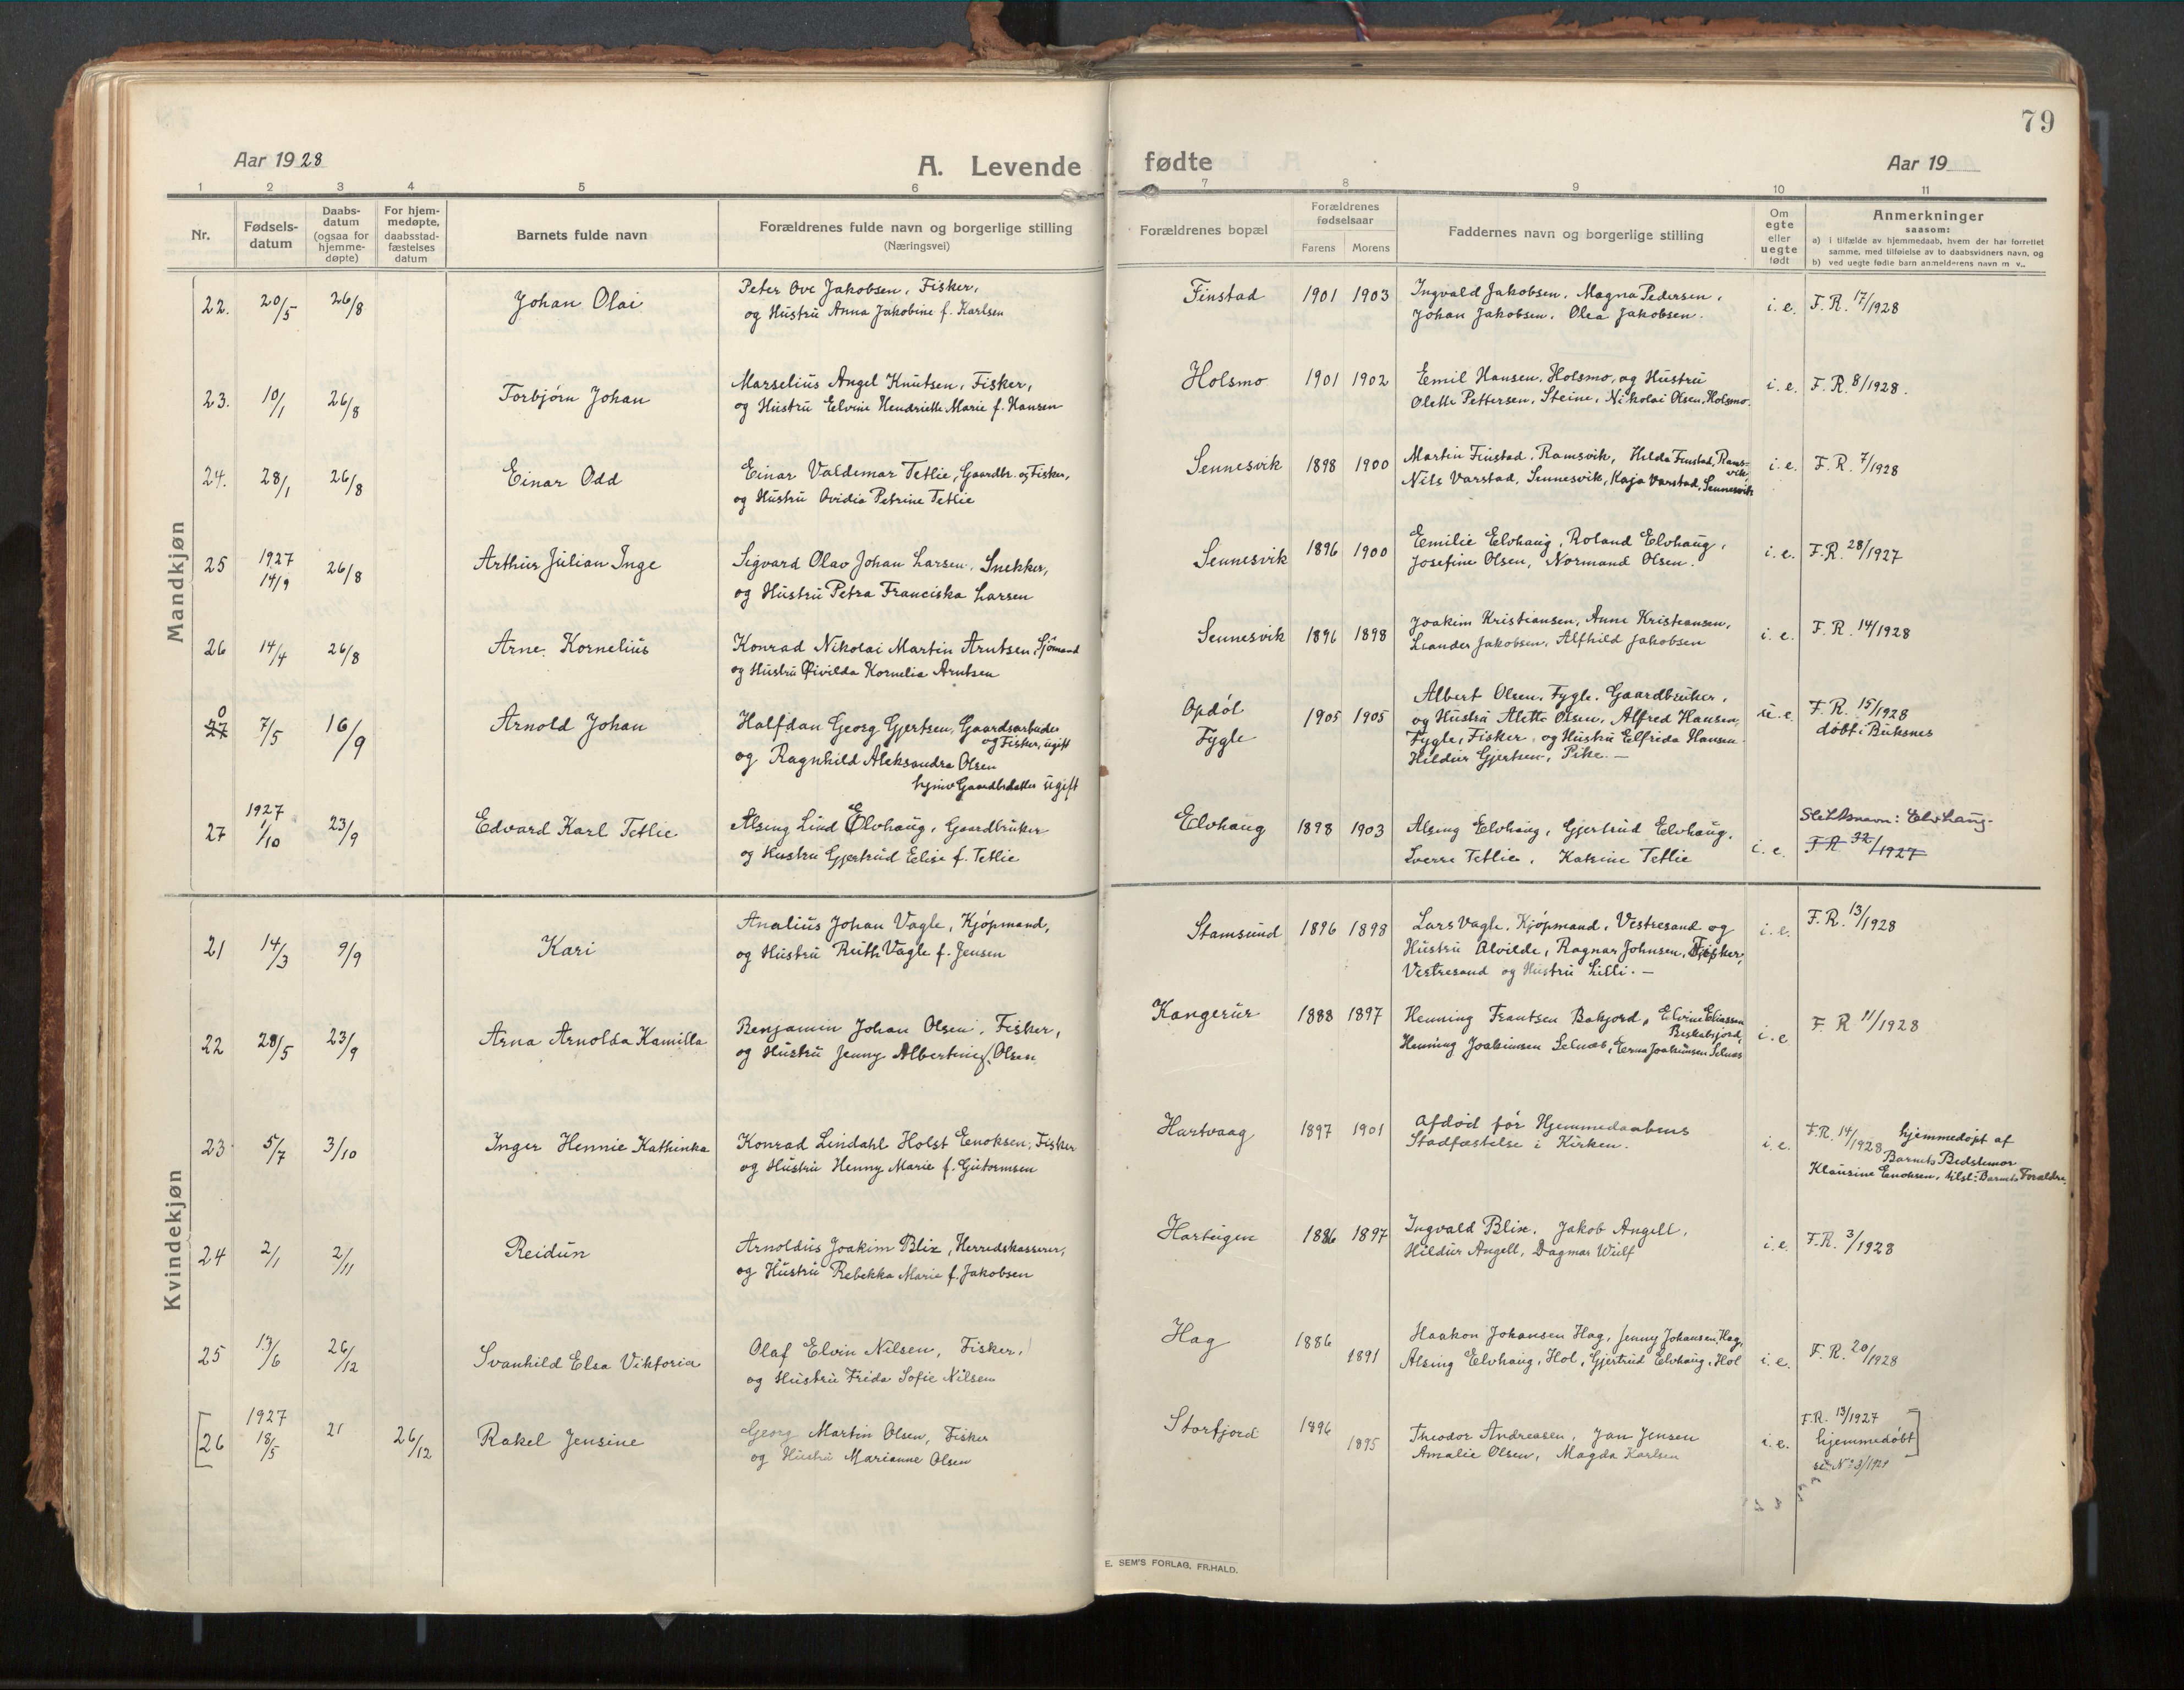 79
Aar 1928
A. Levende
fødte
Aar 19
1 2 3 4 5 6 7 8 9 10 11
Nr.
Fødsels-
datum
Daabs-
datum
(ogsaa for
hjemme-
døpte)
For hjem-
medøpte,
daabsstad-
fæstelses
datum
Barnets fulde navn
Forældrenes fulde navn og borgerlige stilling
(Næringsvei)
Forældrenes bopæl
Forældrenes
fødselsaar
Farens Morens
Faddernes navn og borgerlige stilling
Om
egte
eller
uegte
født
Anmerkninger
saasom:
a) i tilfælde av hjemmedaab, hvem der har forrettet
samme, med tilføielse av to daabsvidners navn, og
b) ved uegte fødte barn anmelderens navn m. v.
Mandkjøn
22. 20/5 26/8 Johan Olai
Peter Ove Jakobsen, Fisker,
og Hustru Anna Jakobine f. Karlsen
Finstad 1901 1903
Ingvald Jakobsen, Magna Pedersen,
Johan Jakobsen. Olea Jakobsen.
i. e. F. R. 17/1928
23. 10/1 26/8 Torbjörn Johan
Marselius Angel Knutsen, Fisker,
og Hustru Elvine Hendriette Marie f. Hansen
Holsmo 1901 1902
Emil Hansen, Holsmo, og Hustru
Olette Pettersen, Steine, Nikolai Olsen, Holsmo.
i. e. F. R. 8/1928.
24. 28/1 26/8 Einar Odd
Einar Valdemar Tetlie, Gaardbr. og Fisker,
og Hustru Ovidia Petrine Tetlie
Sennesvik 1898 1900
Martin Finstad, Ramsvik, Hilda Finstad, Rams-
vik,
Nils Varstad, Sennesvik, Kaja Varstad, Sennesvik
i. e. F. R. 7/1928
25 1927 14/9 26/8 Arthur Julian Inge
Sigvard Olav Johan Larsen, Snekker,
og Hustru Petra Franciska Larsen
Sennesvik 1896 1900
Emilie Elvhaug, Roland Elvhaug,
Josefine Olsen, Normand Olsen.
i. e. F. R. 28/1927
26 14/4 26/8 Arne Kornelius
Konrad Nikolai Martin Arntsen, Sjömand
og Hustru Öivilda Kornelia Arntsen
Sennesvik 1896 1898
Joakim Kristiansen, Anne Kristiansen,
Leander Jakobsen, Alfhild Jakobsen
i. e. F. R. 14/1928
0
27 7/5 16/9 Arnold Johan
Halfdan Georg Gjertsen, Gaardsarbeider
og Fisker, ugift
og Ragnhild Aleksandra Olsen
hjemv Gaardbdatter ugift
Opdöl
Fygle 1905 1905
Albert Olsen, Fygle, Gaardbruker,
og Hustru Alette Olsen, Alfred Hansen,
Fygle, Fisker, og Hustru Elfrida Hansen.
Hildur Gjertsen, Pike. —
u. e. F. R. 15/1928
döbt i Buksnes
27 1927 1/10 23/9 Edvard Karl Tetlie
Alsing Lind Elvhaug, Gaardbruker
og Hustru Gjertrud Elise f. Tetlie
Elvhaug 1898 1903
Alsing Elvhaug, Gjertrud Elvhaug,
Sverre Tetlie, Katrine Tetlie
i. e. Slektsnavn: Elvhaug.
F. R. 32/1927
Kvindekjøn
21 14/3 9/9 Kari
Analius Johan Vagle, Kjöpmand,
og Hustru Ruth Vagle f. Jensen
Stamsund 1896 1898
Lars Vagle, Kjöpmand, Vestresand og
Hustru Alvilde, Ragnar Johnsen, Fisker,
Vestresand og Hustru Lilli. —
i. e. F. R. 13/1928
22 28/5 23/9 Arna Arnolda Kamilla
Benjamin Johan Olsen, Fisker,
og Hustru Jenny Albertine f. Olsen
Kangerur 1888 1897
Henning Frantsen Bakjord, Elvine Eliassen
Henning Joakimsen Selnæs, Erna Joakimsen Selnæs
i. e. F. R 11/1928
23 5/7 3/10 Inger Hennie Kathinka
Konrad Lindahl Holst Enoksen, Fisker
og Hustru Henny Marie f. Gutormsen
Hartvaag 1897 1901
Afdöd för Hjemmedaabens
Stadfæstelse i Kirken.
i. e. F. R. 14/1928 hjemmedöpt af
Barnets Bedstemor
Klausine Enoksen, tilst. Barnets Forældre.
24 2/1 2/11 Reidun
Arnoldus Joakim Blix, Herredskasserer,
og Hustru Rebekka Marie f. Jakobsen
Harteigen 1886 1897
Ingvald Blix, Jakob Angell,
Hildur Angell, Dagmar Wulf
i. e. F. R. 3/1928
25 13/6 26/12 Svanhild Elsa Viktoria
Olaf Elvin Nilsen, Fisker,
og Hustru Frida Sofie Nilsen
Hag 1886 1891
Haakon Johansen Hag, Jenny Johansen, Hag,
Alsing Elvhaug, Hol, Gjertrud Elvhaug, Hol
i. e. F. R. 20/1928
[26 1927 18/5 21 26/12 Rakel Jensine
Georg Martin Olsen, Fisker
og Hustru Marianne Olsen
Storfjord 1896 1895
Theodor Andreasen, Jan Jensen
Amalie Olsen, Magda Karlsen
i. e. F. R. 13/1927
hjemmedöbt]
E. SEM'S FORLAG, FR.HALD.